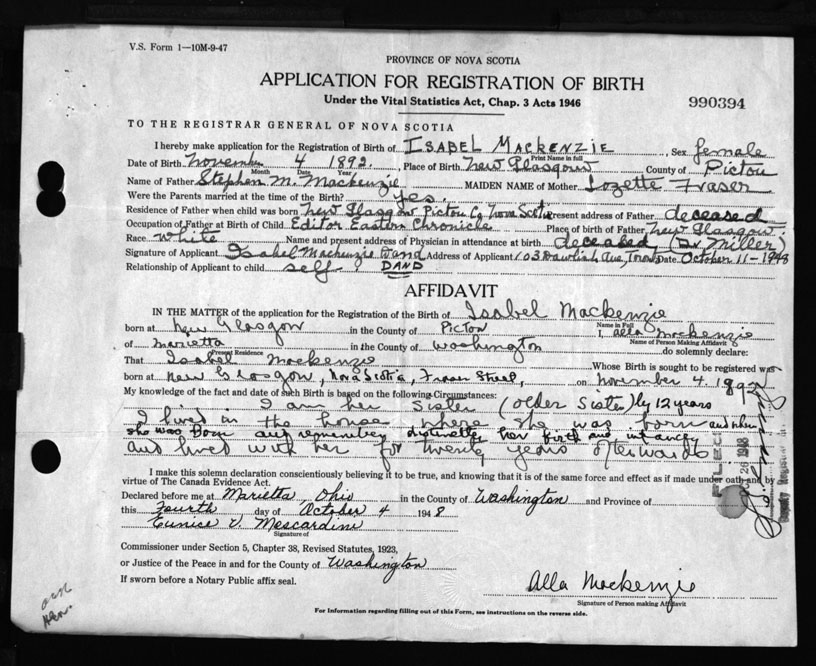 V.S. Form 1—10M-9-47
PROVINCE OF NOVA SCOTIA
APPLICATION FOR REGISTRATION OF BIRTH
Under the Vital Statistics Act, Chap. 3 Acts 1946
990394
TO THE REGISTRAR GENERAL OF NOVA SCOTIA
I hereby make application for the Registration of Birth of ISABEL MACKENZIE, Sex female
Print Name in full
Date of Birth November 4 1892., Place of Birth New Glasgow County of Pictou
Month Date Year
Name of Father Stephen M. Mackenzie MAIDEN NAME of Mother Lozette Fraser
Were the Parents married at the time of the Birth? Yes.
Residence of Father when child was born New Glasgow Pictou Co Nova Scotia Present address of Father deceased
Occupation of Father at Birth of Child Editor Eastern Chronicle Place of birth of Father New Glasgow.
Race White Name and present address of Physician in attendance at birth deceased (Dr. Miller)
Signature of Applicant Isabel Mackenzie Dand Address of Applicant 103 Dawlish Ave, Date October 11-1948
Relationship of Applicant to child self DAND
AFFIDAVIT
IN THE MATTER of the application for the Registration of the Birth of Isabel Mackenzie
Name in Full
born at New Glasgow in the County of Pictou I, Alla Mackenzie
Name of Person Making Affidavit
of Marietta in the County of Washington do solemnly declare:
Present Residence
That Isabel Mackenzie Whose Birth is sought to be registered was
born at New Glasgow, Nova Scotia, Fraser Street, on November 4. 1892
My knowledge of the fact and date of such Birth is based on the following Circumstances:
I am her sister (older sister) by 12 years
I lived in the house where she was born and when
she was Born and remember distinctly her birth and infancy
and lived with her for twenty years afterwards
I make this solemn declaration conscientiously believing it to be true, and knowing that it is of the same force and effect as if made under oath and by
virtue of The Canada Evidence Act.
Declared before me at Marietta, Ohio in the County of Washington and Province of
this Fourth day of October 4 1948
Eunice V. Mescardini
Signature of
Commissioner under Section 5, Chapter 38, Revised Statutes, 1923,
or Justice of the Peace in and for the County of Washington
If sworn before a Notary Public affix seal.
Alla Mackenzie
Signature of Person making Affidavit
For Information regarding filling out of this Form, see instructions on the reverse side.
FILED